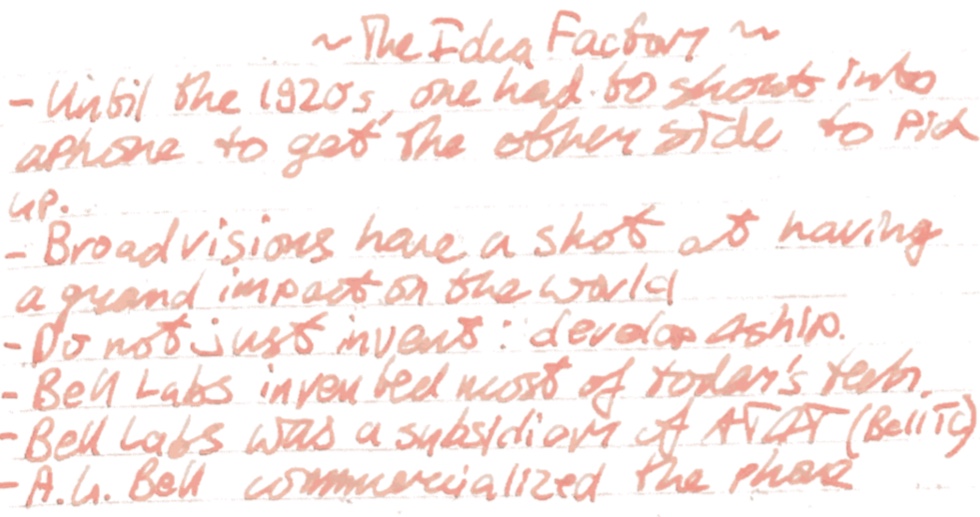 ~ The Idea Factory ~
- Until the 1920s, one had to shout into
a phone to get the other side to pick
up.
- Broad visions have a shot at having
a grand impact on the world
- Do not just invent: develop & ship.
- Bell Labs invented most of today's tech.
- Bell Labs was a subsidiary of AT&T (Bell TC)
- A.G. Bell commercialized the phone